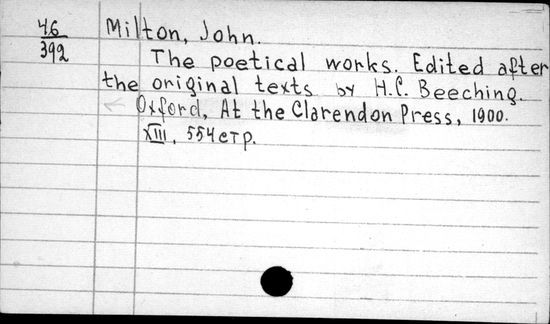 46
392
Milton, John.
The poetical works. Edited after
the original texts by H.C. Beeching.
Oxford, At the Clarendon Press, 1900.
XIII, 554 стр.